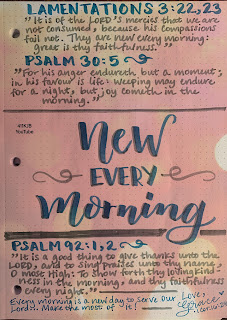 LAMENTATIONS 3:22,23
"It is of the LORD's mercies that we are
not consumed, because his compassions
fail not. They are new every morning:
great is thy faithfulness."
PSALM 30:5
"For his anger endureth but a moment;
in his favour is life: weeping may endure
for a night, but joy cometh in the
morning."
YouTube
New
EVERY
Morning
PSALM 92:1,2
"It is a good thing to give thanks unto the
LORD, and to sing praises unto thy name,
O most High: To shew forth thy lovingkind
ness in the morning, and thy faithfulness
every night."
Every morning is a new day to serve our
Lord!! Make the most of it!
Love,
Grace